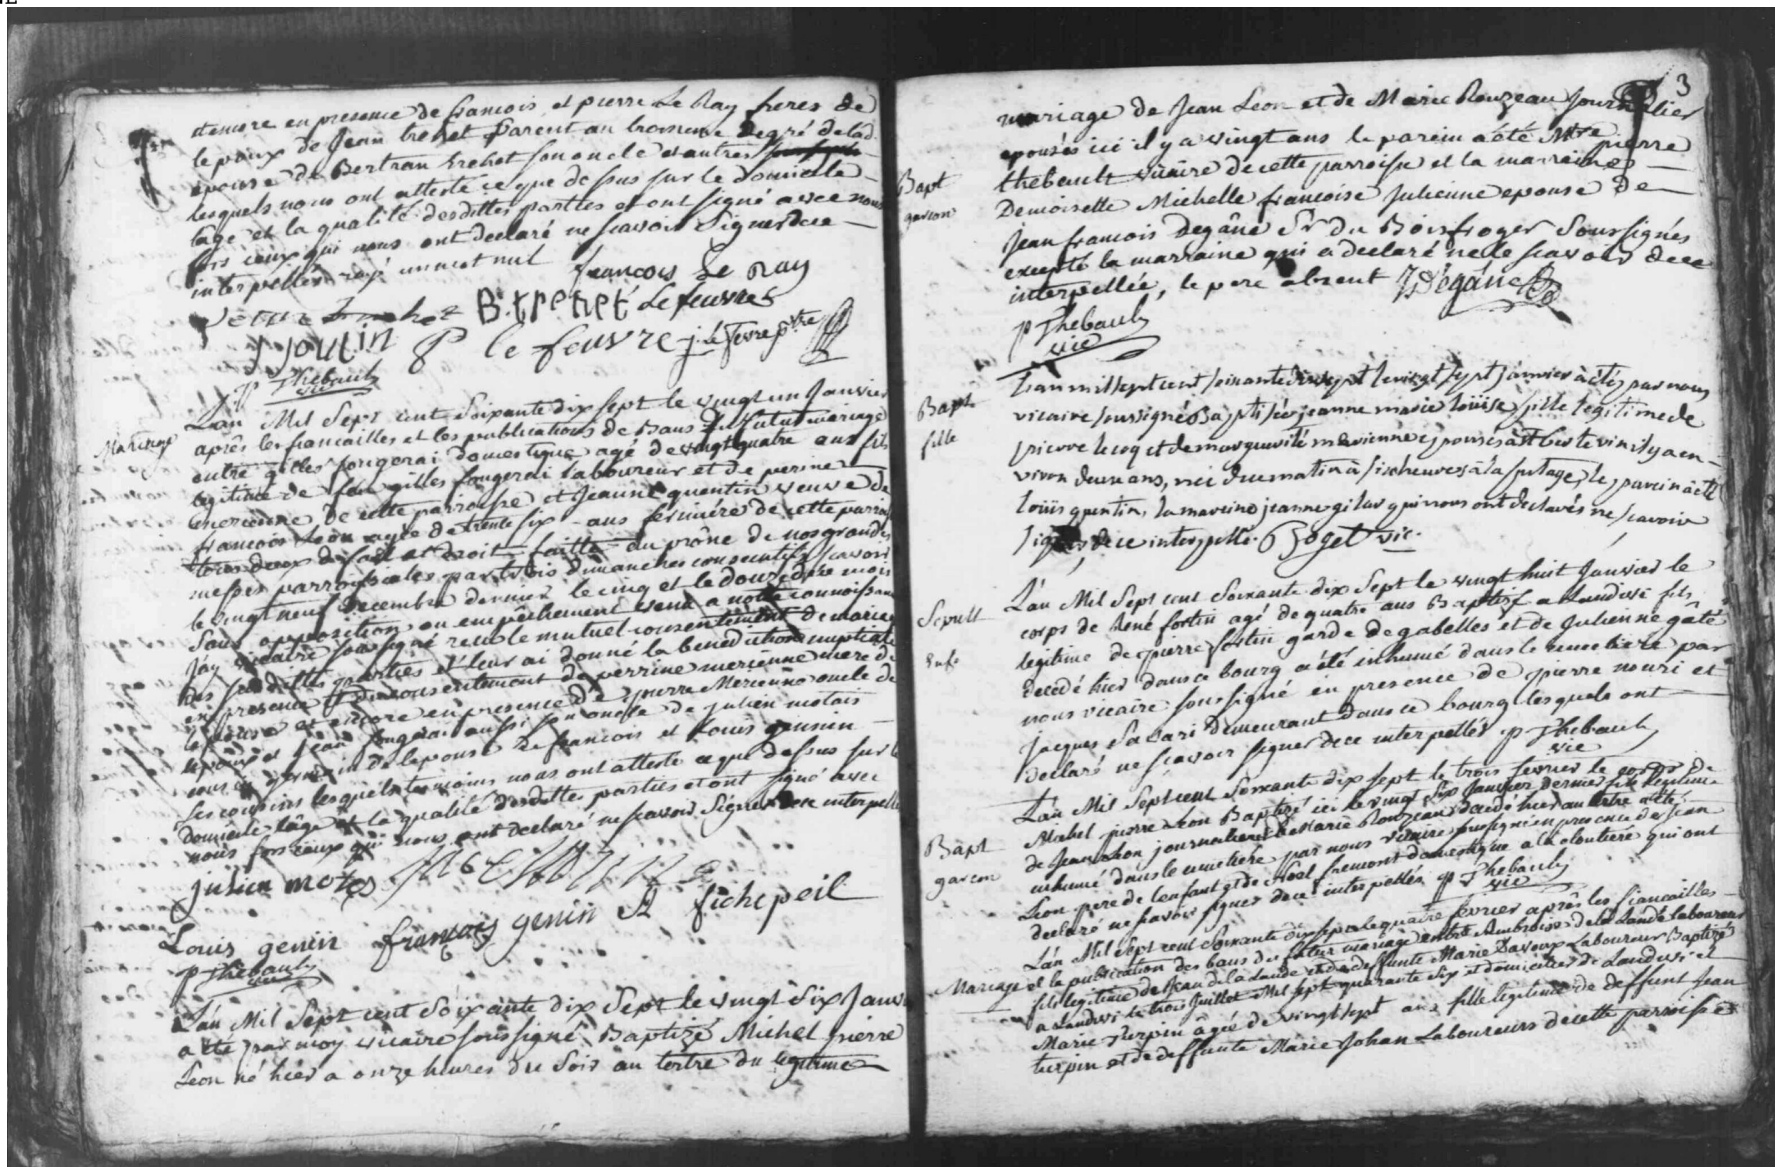 encore en presence de francois et pierre Le Ray freres de
lepoux de Jean trehet parent au troisieme degré de lad.
epouse de Bertran trehet son oncle et autres
lesquels nous ont attesté ce que dessus sur le domicile
lage et la qualité desdittes parties et ont signé avec nous
fors ceux qui nous ont declaré ne scavoir Signer dece
interpellés rayé un mot nul
francois Le Ray
B. trehet Lefeuvre
J Joulin P le feuvre j. lefevre ptre
p Thebault
vic
Mariage
L'an Mil Sept cent Soixante dix sept le vingt un Janvier
après les fiancailles et les publications de Bans du futur mariage
entre gilles fongerai domestique agé de vingt quatre ans fils
legitime de feu gilles fongerai laboureur et de perine
merienne de cette parroisse et Jeanne quentin veuve de
francois Leon agée de trente six ans fermiere de cette parroi
tous deux de fait et droit faitte au prône de nos grandes
messes parroissiales par trois dimanches consecutifs scavoir
le vingt neuf decembre dernier le cinq et le douze de ce mois
sans opposition ou empêchement venu a notre connoissance
Jay vicaire soussigné recu le mutuel consentement de mariage
des susdittes parties et leur ai donné la benediction nuptiale
en presence et du consentement de perrine merienne mere de
lepoux et encore en presence de pierre Merienne oncle de
lepoux et Jean fongerai aussi son oncle de julien motais
cousin germain de lepouse de francois et Louis genin
ses cousins lesquels temoins nous ont attesté ce que dessus sur le
domicile lâge et la qualité desdittes parties et ont signé avec
nous fors ceux qui nous ont declaré ne scavoir Signer dece interpellés
julien motes
fichepeil
Louis genin francois genin
p Thebault
vic
L'an Mil Sept cent Soixante dix Sept le vingt Six Janv
a été par moy vicaire soussigné Baptizé Michel pierre
Leon né hier a onze heures du Soir au tertre du legitime
3
Bapt
garcon
mariage de Jean Leon et de Marie Rouzeau journalier
epousés ici il y a vingt ans le parein a été Mtre pierre
thebault vicaire de cette parroisse et la marraine
Demoiselle Michelle francoise Julienne epouse de
Jean francois Degâne Sr du Boisfroger Soussignés
excepté la marraine qui a declaré ne le scavoir dece
interpellée, le pere absent J Degâne
p Thebault
vic
Bapt
fille
L'an mil sept cent soixante dix sept le vingt sept janvier à été par nous
vicaire soussigné Baptisée jeanne marie loüise fille legitime de
pierre lecoq et de marguerite merienne epousés à il y a en-
viron deux ans, née du matin à six heures à la le parein à été
loüis quentin, la mareine jeanne gilar qui nous ont declarés ne scavoir
signer, de ce interpellé. Poget vic.
Sepult
enfe
L'an Mil Sept cent Soixante dix Sept le vingt huit Janvier le
corps de René fortin agé de quatre ans Baptisé a Landivi fils
legitime de pierre fortin garde de gabelles et de Julienne gâté
decedé hier dans ce bourg a été inhumé dans le cimetiere par
nous vicaire soussigné en presence de pierre nouri et
Jacques Savari demeurant dans ce bourg lesquels ont
declaré ne scavoir signer dece interpellés p Thebault
vic
Bapt
garcon
L'an Mil Sept cent Soixante dix sept le trois fevrier le corps de
Michel pierre Leon Baptizé ici le vingt Six Janvier dernier fils legitime
de Jean Leon journalier et de Marie Rouzeau decedé hier au tertre a été
inhumé dans le cimetiere par nous vicaire soussigné en presence de Jean
Leon pere de lenfant et de Noel fremont domestique a la cloutiere qui ont
declaré ne scavoir signer dece interpellés p Thebault
vic
Mariage
L'an Mil Sept cent Soixante dix sept le quatre fevrier après les fiancailles
et la publication des bans du futur mariage entre Ambroise de la Lande laboureur
fils legitime de Jean de la Lande et de deffunte Marie Davoux Laboureur Baptizé
a Landivi le trois Juillet Mil sept quarante Six et domicilié de Landivi et
Marie Turpin âgée de vingt sept ans fille legitime de deffunt Jean
turpin et de deffunte Marie Johan Laboureurs de cette parroisse